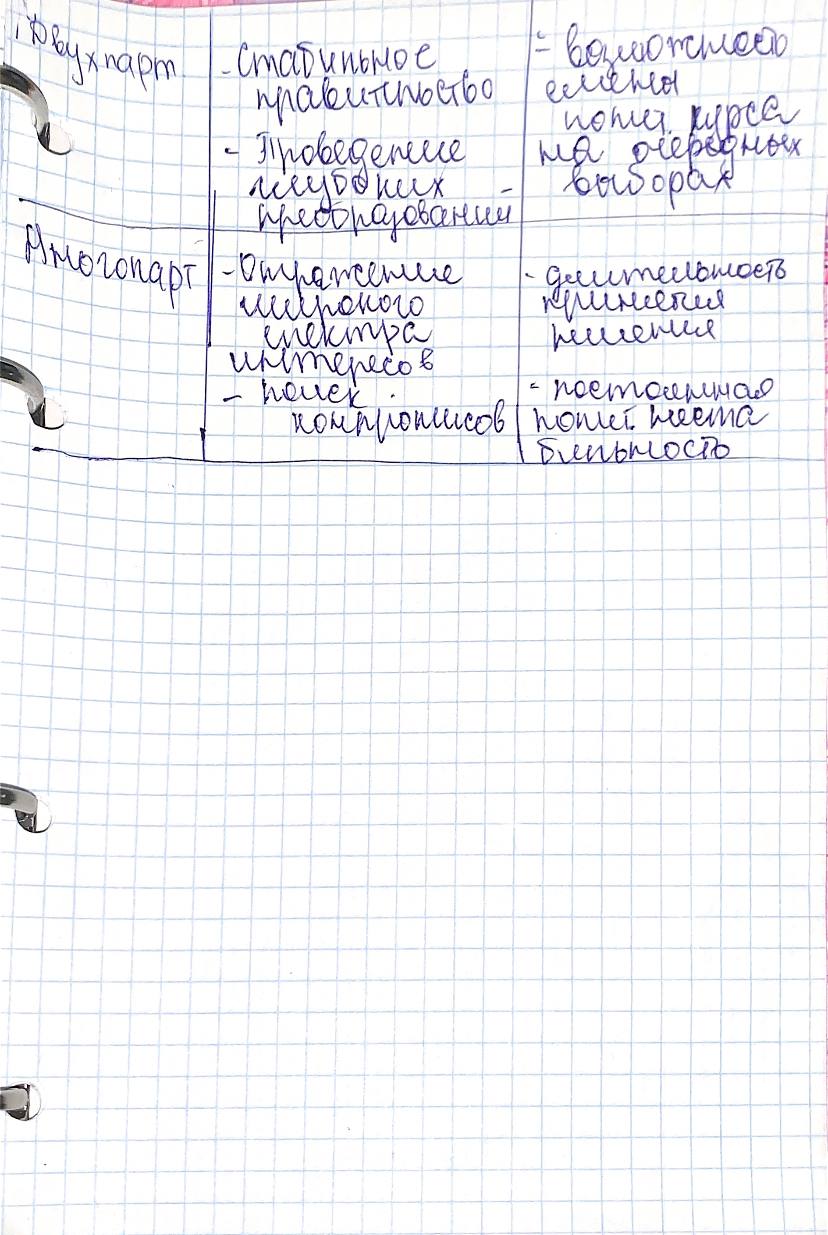 Двухпарт
- Стабильное
правительство
- Проведение
глубоких
преобразований
- возможность
смены
полит. курса
на очередных
выборах
Многопарт
- Отражение
широкого
спектра
интересов
- поиск
компромисов
- длительность
принятия
решения
- постоянная
полит. неста
бильность